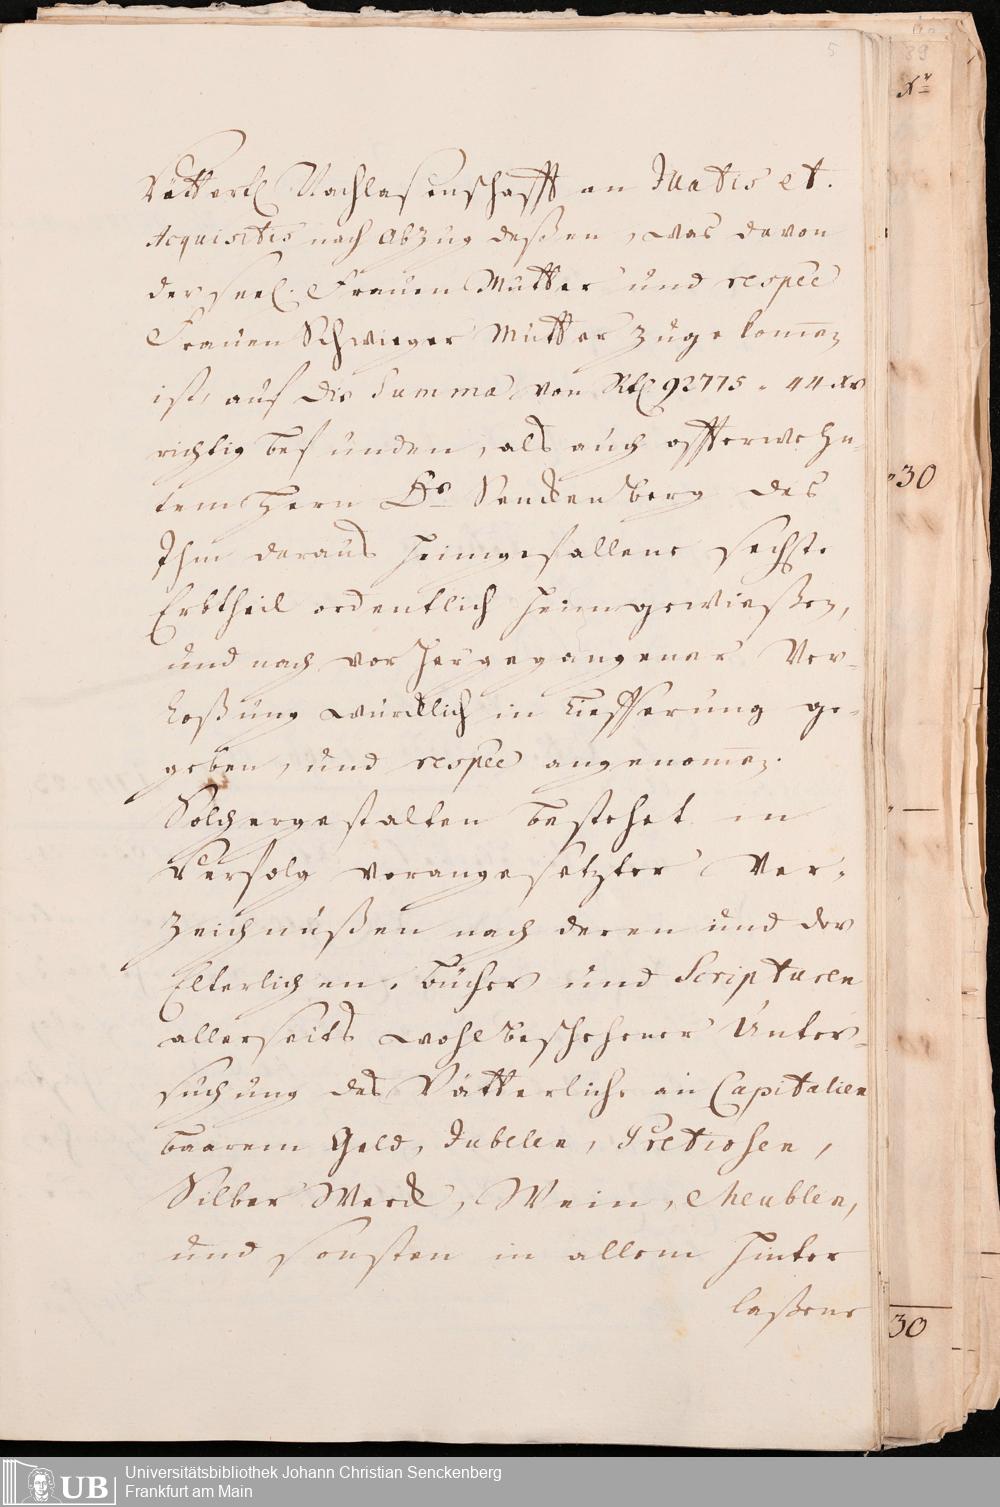 5
Vätterl. Nachlasenschafft an Illatis et.
Acquisitis nach Abzug deßen, was davon
der seel. Frauen Mutter und respee
Frauen Schwieger Mutter zugekomen
ist, auf die Summa von Rtl. 92775 " 44 Xr
richtig befunden, als auch offterwehn-
tem Herrn Drs Senckenberg das
Ihm daraus heimgefallene sechste
Erbtheil ordentlich heimgewießen,
und nach vorhergegangener Ver-
loßung würcklich in Liefferung ge-
geben, und respee angenomen.
Solchergestalten bestehet in
Verfolg vorangesetzter Ver-
zeichnüßen nach deren und der
Elterlichen Bücher und Scripturen
allerseits wohlbeschehener Unter-
suchung das Vätterliche an Capitalien
baarem Geld, Jubelen, Pretiosen,
Silber Werck, Wein, Meublen,
und sonsten in allem hinter
laßene
39
Xr
"30
30
UB
Universitätsbibliothek Johann Christian Senckenberg
Frankfurt am Main